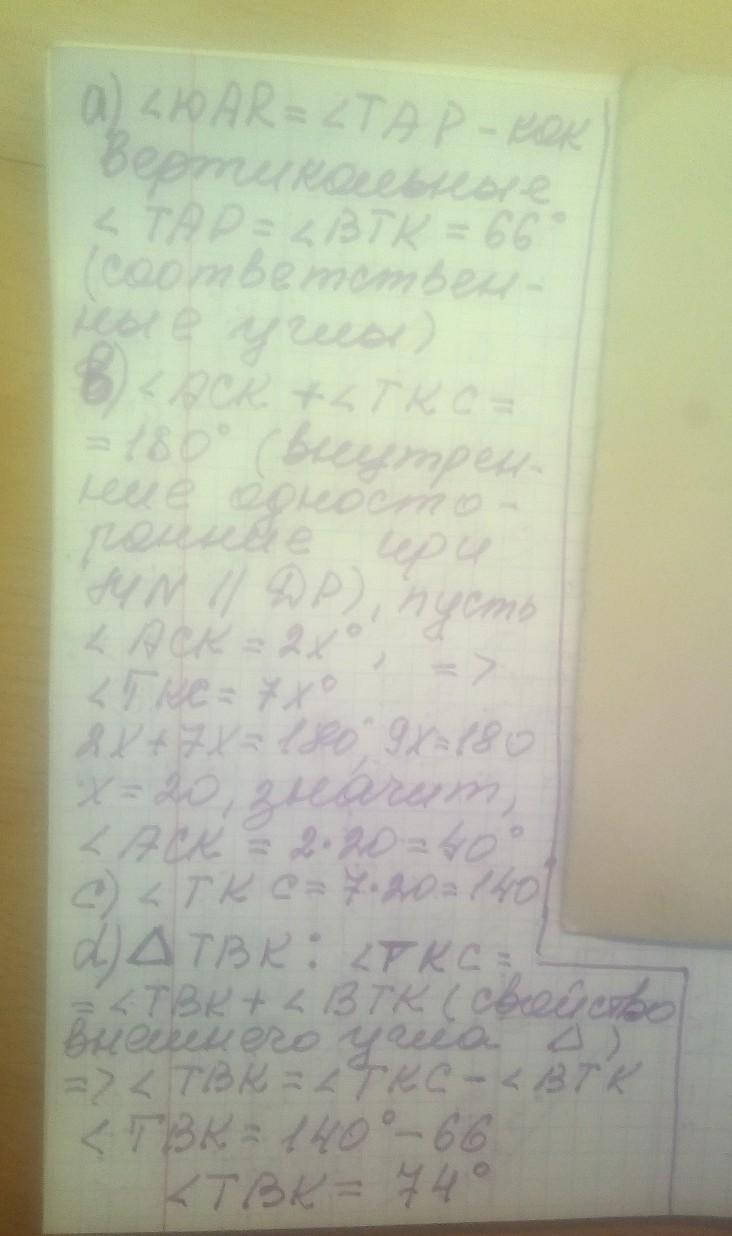 а) ∠ЮAR = ∠TAP - как
вертикальные
∠ TAP = ∠BTK = 66°
(соответствен-
ные углы)
в) ∠ACK + ∠TKC =
= 180° (внутрен-
ние односто-
ронние при
MN // DP), пусть
∠ACK = 2x°, =>
∠TKC = 7x°
2x + 7x = 180°, 9x = 180
x = 20, значит,
∠ACK = 2·20 = 40°
c) ∠TKC = 7·20 = 140
d) △ TBK: ∠TKC =
= ∠TBK + ∠BTK (свойство
внешнего угла △)
=> ∠TBK = ∠TKC - ∠BTK
∠TBK = 140° - 66
∠TBK = 74°